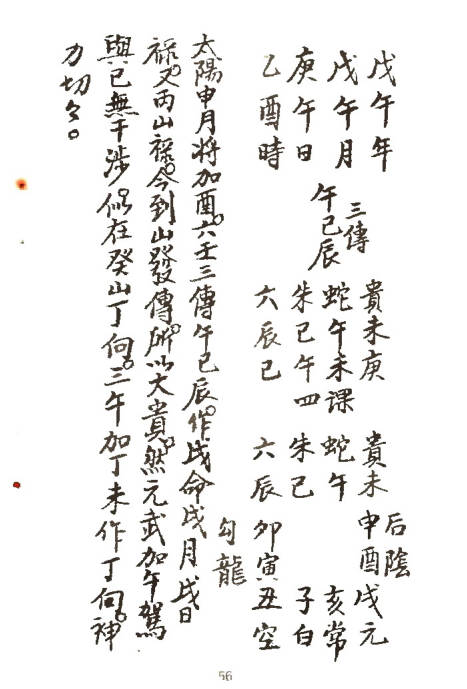 戊午年
戊午月
庚午日
乙酉時
三傳
午巳辰
貴未庚
蛇午未課
朱巳午四
六辰巳
后陰
貴未申酉戌元
蛇午亥常
朱巳子白
六辰卯寅丑空
勾龍
太陽申月将加酉。六壬三傳午巳辰。作戊命戊月戊日
祿。又丙山祿。今到山發傳。所以大貴。然元武加午駕
與巳無干涉。似在癸山丁向。三午加丁未作丁向。神
力切々。
56